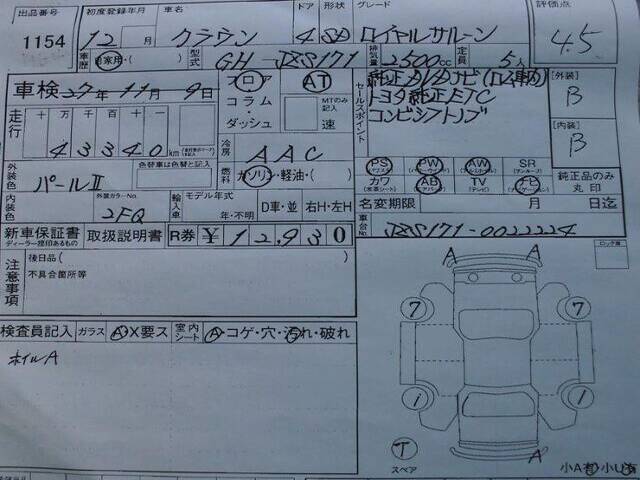 出品番号
1154
初度登録年月
12月
車名
クラウン
ドア
4
形状
SD
グレード
ロイヤルサルーン
評価点
4.5
車歴
自家用・( )
型式
GH-JZS171
排気量
2500cc
定員
5人
車検 27年11月9日
フロア
コラム・
ダッシュ
AT
MTのみ記入
速
セールスポイント
トヨタ純正ETC
コンビシフトノブ
[外装]
B
[内装]
B
走行
十 万 千 百 十
4 3 3 4 0 km
冷房
AAC
外装色
パールⅡ
色替車は色替と記入
燃料
ガソリン・軽油・( )
PS
PW
AW
SR
カワ
AB
TV
ナビ
純正品のみ
丸印
内装色
外装カラーNo.
2FQ
輸入車
モデル年式
年・不明
D車・並
右H・左H
名変期限
月 日迄
新車保証書
ディーラー捺印あるもの
取扱説明書
R券 ¥ 12,930
車台No.
JZS171-0022224
注意事項
後日品( )
不具合箇所等
ロック車
検査員記入
ガラス
A・X要ス
室内シート
A・コゲ・穴・汚れ・破れ
ホイルA
A A
7 7
i 1
T
スペア
A
小A有 小U有